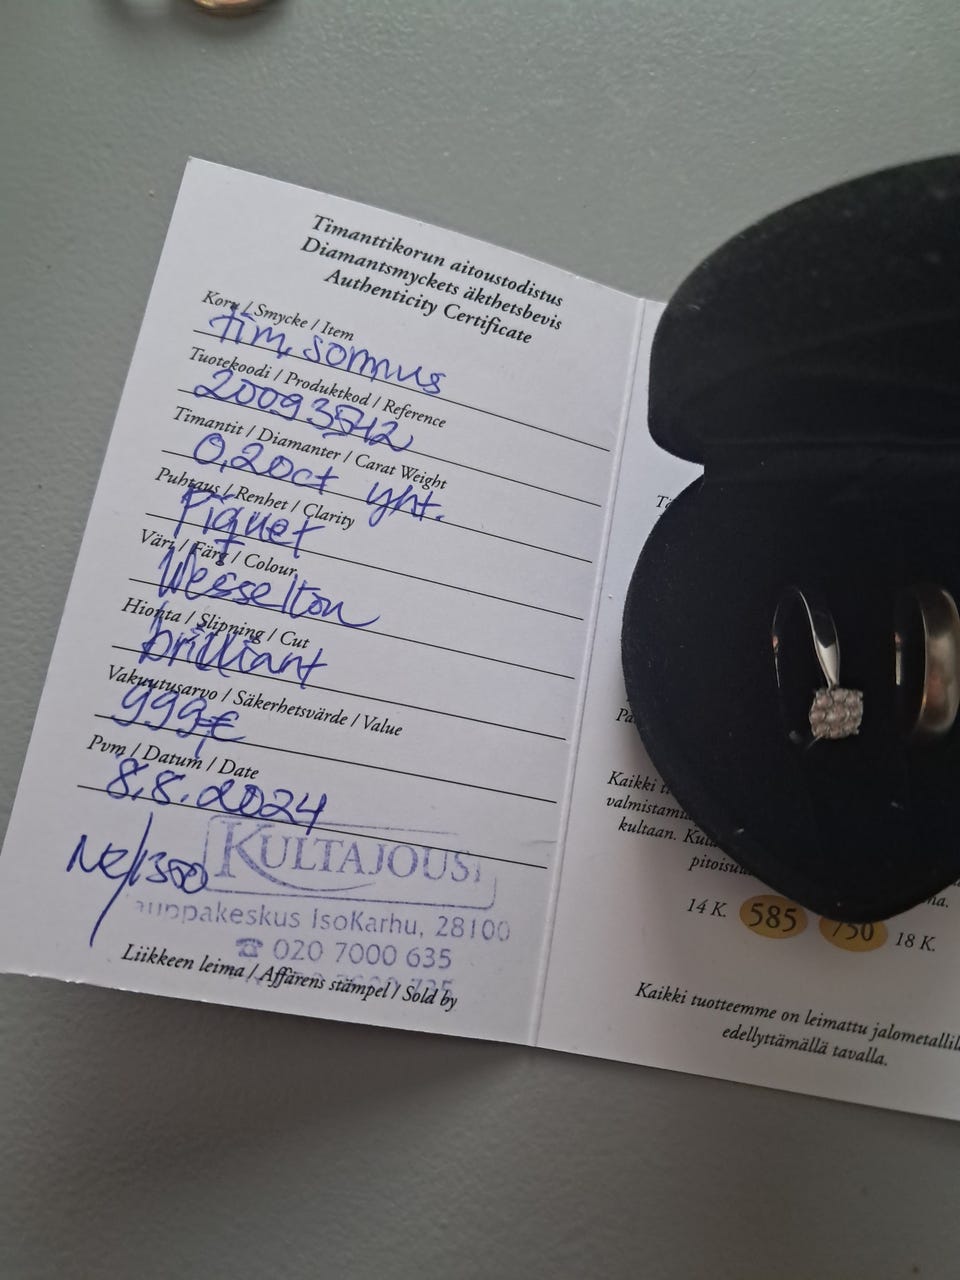 Timanttikorun aitoustodistus
Diamantsmyckets äkthetsbevis
Authenticity Certificate
Koru / Smycke / Item
Tim. sormus
Tuotekoodi / Produktkod / Reference
20093542
Timantit / Diamanter / Carat Weight
0,20ct yht.
Puhtaus / Renhet / Clarity
Piquet
Väri / Färg / Colour
Wesselton
Hionta / Slipning / Cut
brilliant
Vakuutusarvo / Säkerhetsvärde / Value
999€
Pvm / Datum / Date
8.8.2024
KULTAJOUSI
auppakeskus IsoKarhu, 28100
☎ 020 7000 635
Liikkeen leima / Affärens stämpel / Sold by
Kaikki
valmistami
kultaan.
pitoisuu
14 K. 585 750 18 K.
Kaikki tuotteemme on leimattu jalometallila
edellyttämällä tavalla.